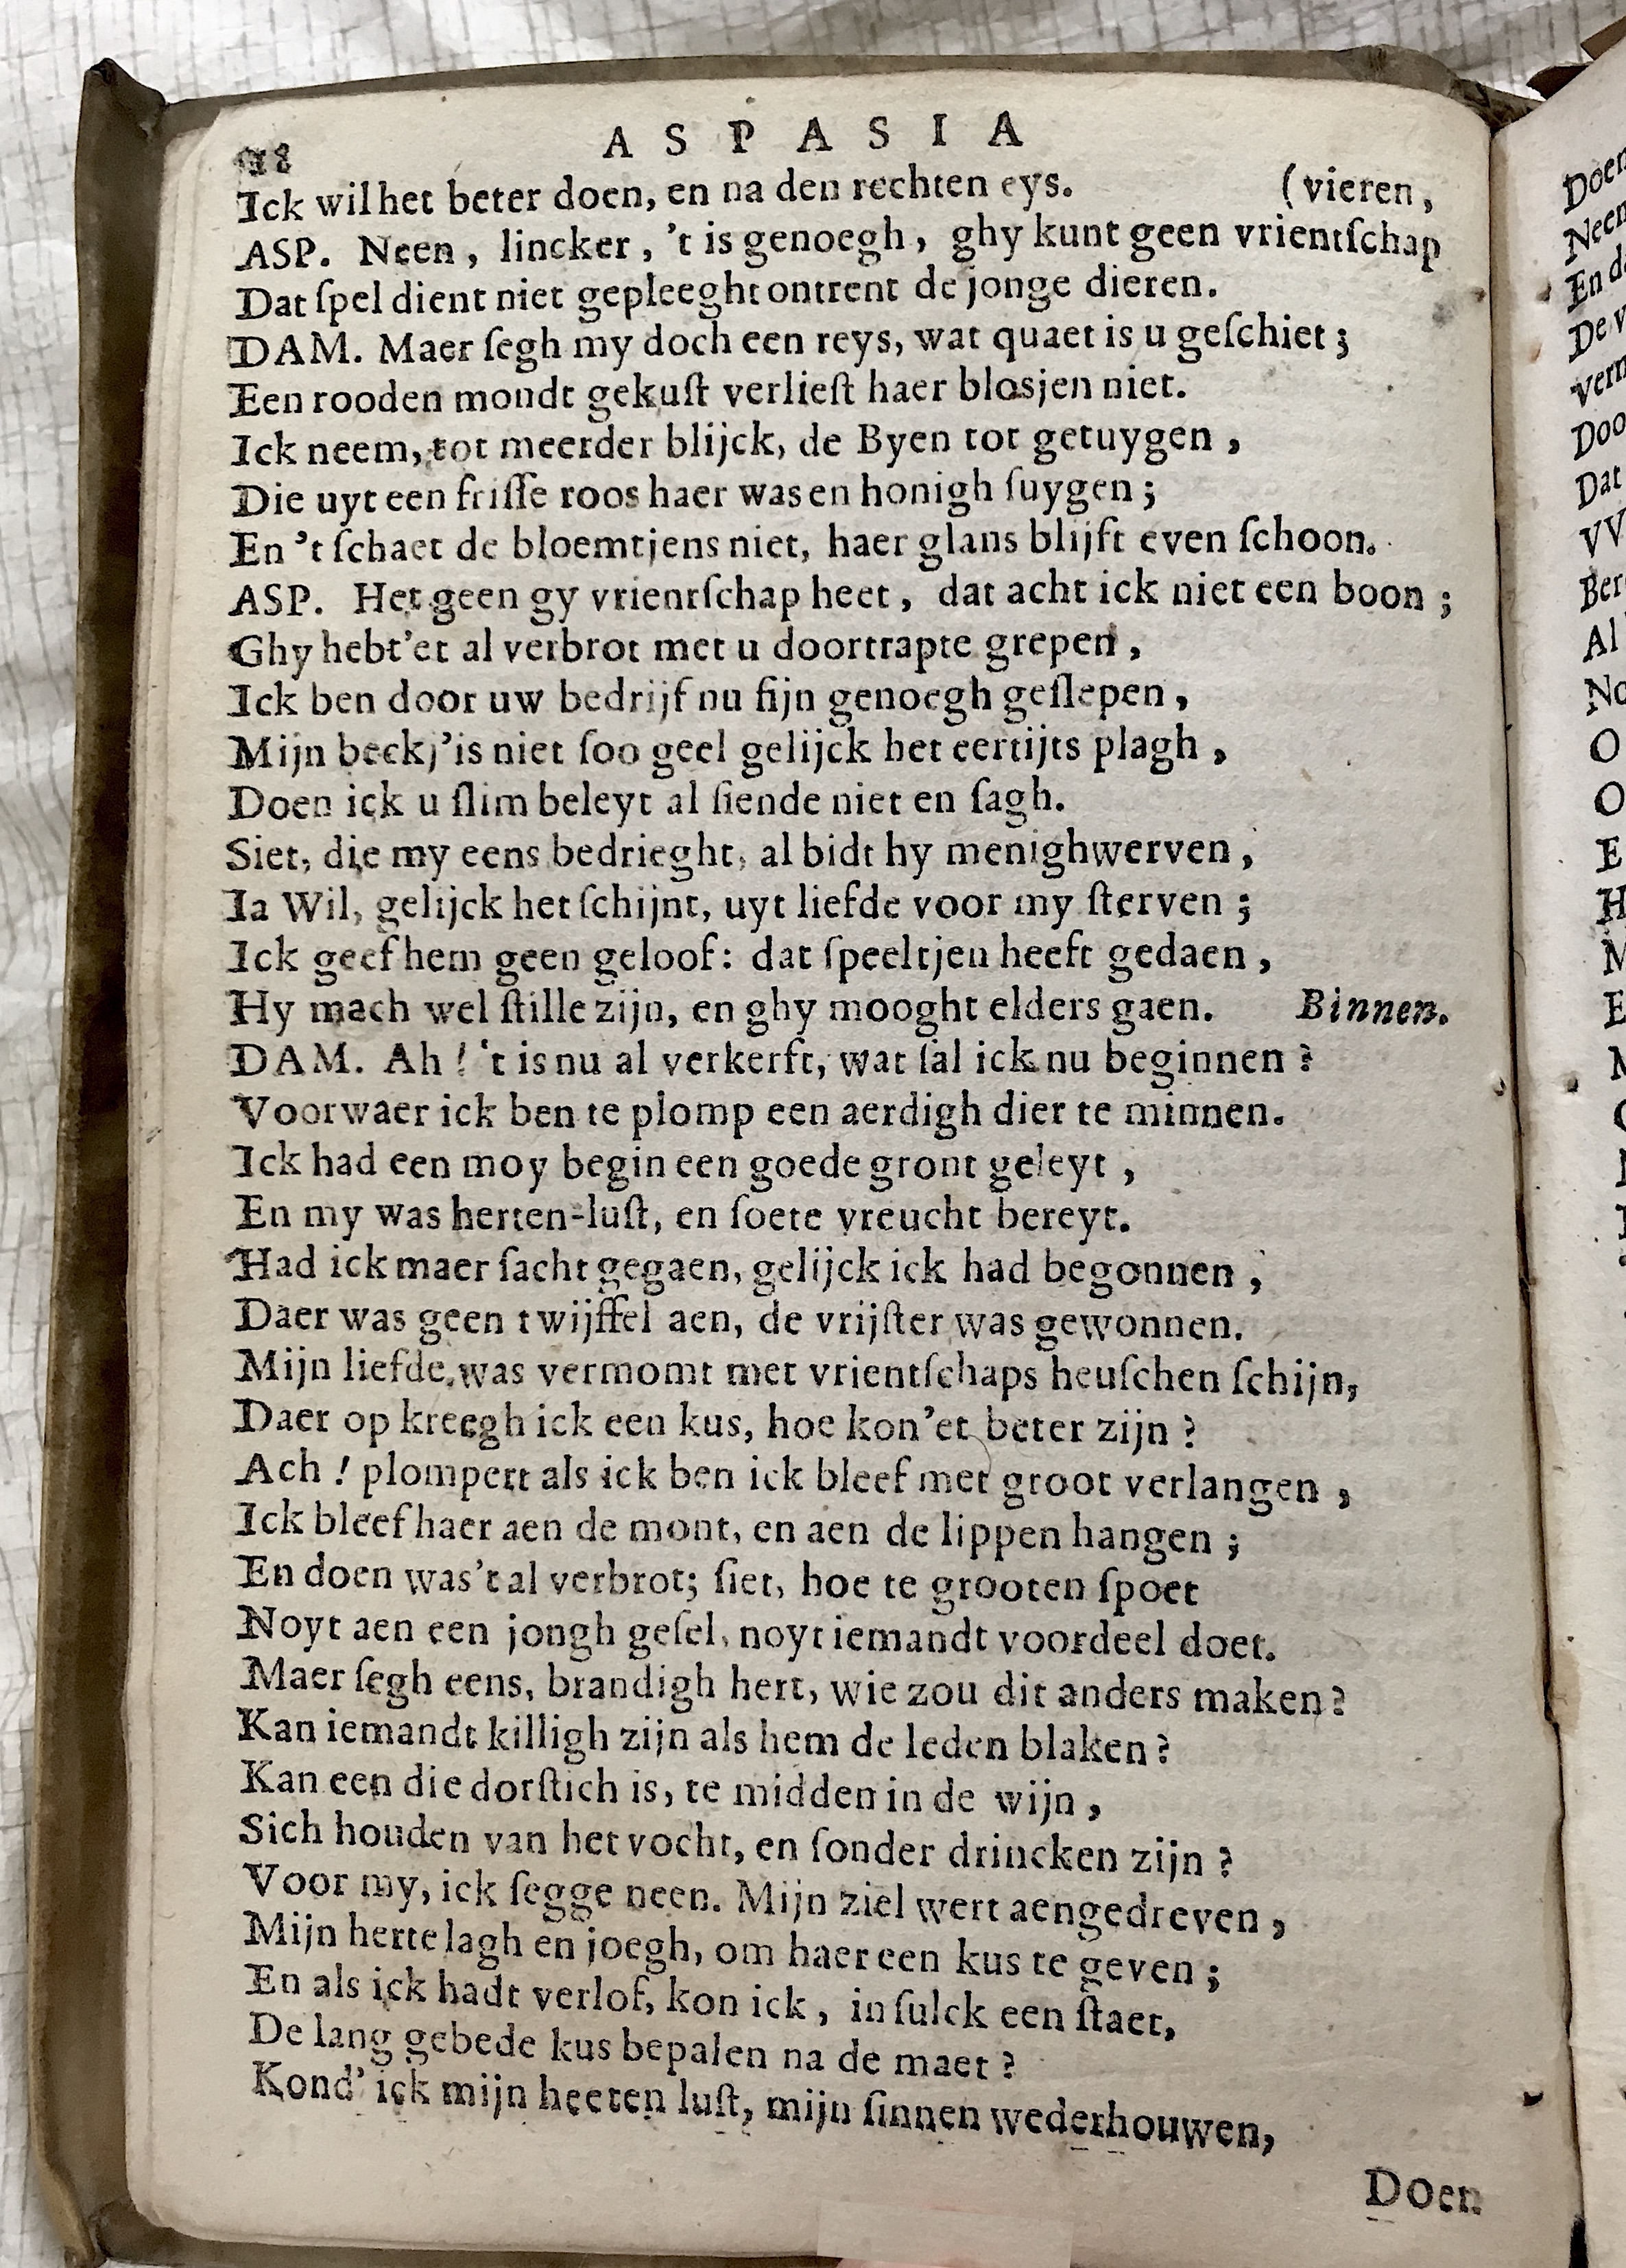 18 ASPASIA
Ick wil het beter doen, en na den rechten eys. (vieren,
ASP. Neen, lincker, 't is genoegh, ghy kunt geen vrientſchap
Dat ſpel dient niet gepleeght ontrent de jonge dieren.
DAM. Maer ſegh my doch een reys, wat quaet is u geſchiet;
Een rooden mondt gekuſt verlieſt haer blosjen niet.
Ick neem, tot meerder blijck, de Byen tot getuygen,
Die uyt een friſſe roos haer was en honigh ſuygen;
En 't ſchaet de bloemtjens niet, haer glans blijft even ſchoon.
ASP. Het geen gy vrientſchap heet, dat acht ick niet een boon;
Ghy hebt'et al verbrot met u doortrapte grepen,
Ick ben door uw bedrijf nu fijn genoegh geſlepen,
Mijn beckj'is niet ſoo geel gelijck het eertijts plagh,
Doen ick u ſlim beleyt al ſiende niet en ſagh.
Siet, die my eens bedrieght, al bidt hy menighwerven,
Ia Wil, gelijck het ſchijnt, uyt liefde voor my ſterven;
Ick geef hem geen geloof: dat ſpeeltjen heeft gedaen,
Hy mach wel ſtille zijn, en ghy mooght elders gaen. Binnen.
DAM. Ah! 't is nu al verkerft, wat ſal ick nu beginnen?
Voorwaer ick ben te plomp een aerdigh dier te minnen.
Ick had een moy begin een goede gront geleyt,
En my was herten-luſt, en ſoete vreucht bereyt.
Had ick maer ſacht gegaen, gelijck ick had begonnen,
Daer was geen twijffel aen, de vrijſter was gewonnen.
Mijn liefde was vermomt met vrientſchaps heuſchen ſchijn,
Daer op kreegh ick een kus, hoe kon'et beter zijn?
Ach! plompert als ick ben ick bleef met groot verlangen,
Ick bleef haer aen de mont, en aen de lippen hangen;
En doen was't al verbrot; ſiet, hoe te grooten ſpoet
Noyt aen een jongh geſel, noyt iemandt voordeel doet.
Maer ſegh eens, brandigh hert, wie zou dit anders maken?
Kan iemandt killigh zijn als hem de leden blaken?
Kan een die dorſtich is, te midden in de wijn,
Sich houden van het vocht, en ſonder drincken zijn?
Voor my, ick ſegge neen. Mijn ziel wert aengedreven,
Mijn herte lagh en joegh, om haer een kus te geven;
En als ick hadt verlof, kon ick, in ſulck een ſtaet,
De lang gebede kus bepalen na de maet?
Kond' ick mijn heeten luſt, mijn ſinnen wederhouwen,
Doen